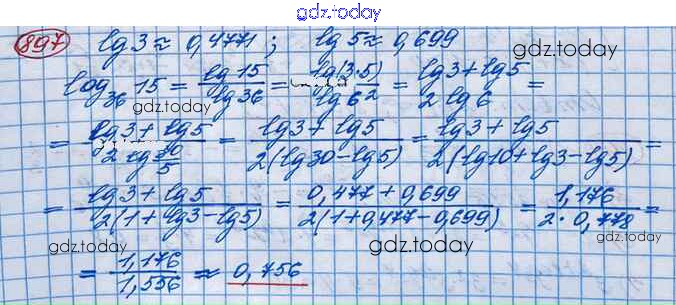 gdz.today
897 lg3≈0,4771; lg5≈0,699
gdz.today
log₃₆15 = lg15/lg36 = lg(3·5)/lg6² = (lg3+lg5)/(2lg6) =
gdz.today
= (lg3+lg5)/(2lg 30/5) = (lg3+lg5)/(2(lg30-lg5)) = (lg3+lg5)/(2(lg10+lg3-lg5)) =
gdz.today
= (lg3+lg5)/(2(1+lg3-lg5)) = (0,477+0,699)/(2(1+0,477-0,699)) = 1,176/(2·0,778) =
gdz.today gdz.today gdz.today
= 1,176/1,556 ≈ 0,756
gdz.today